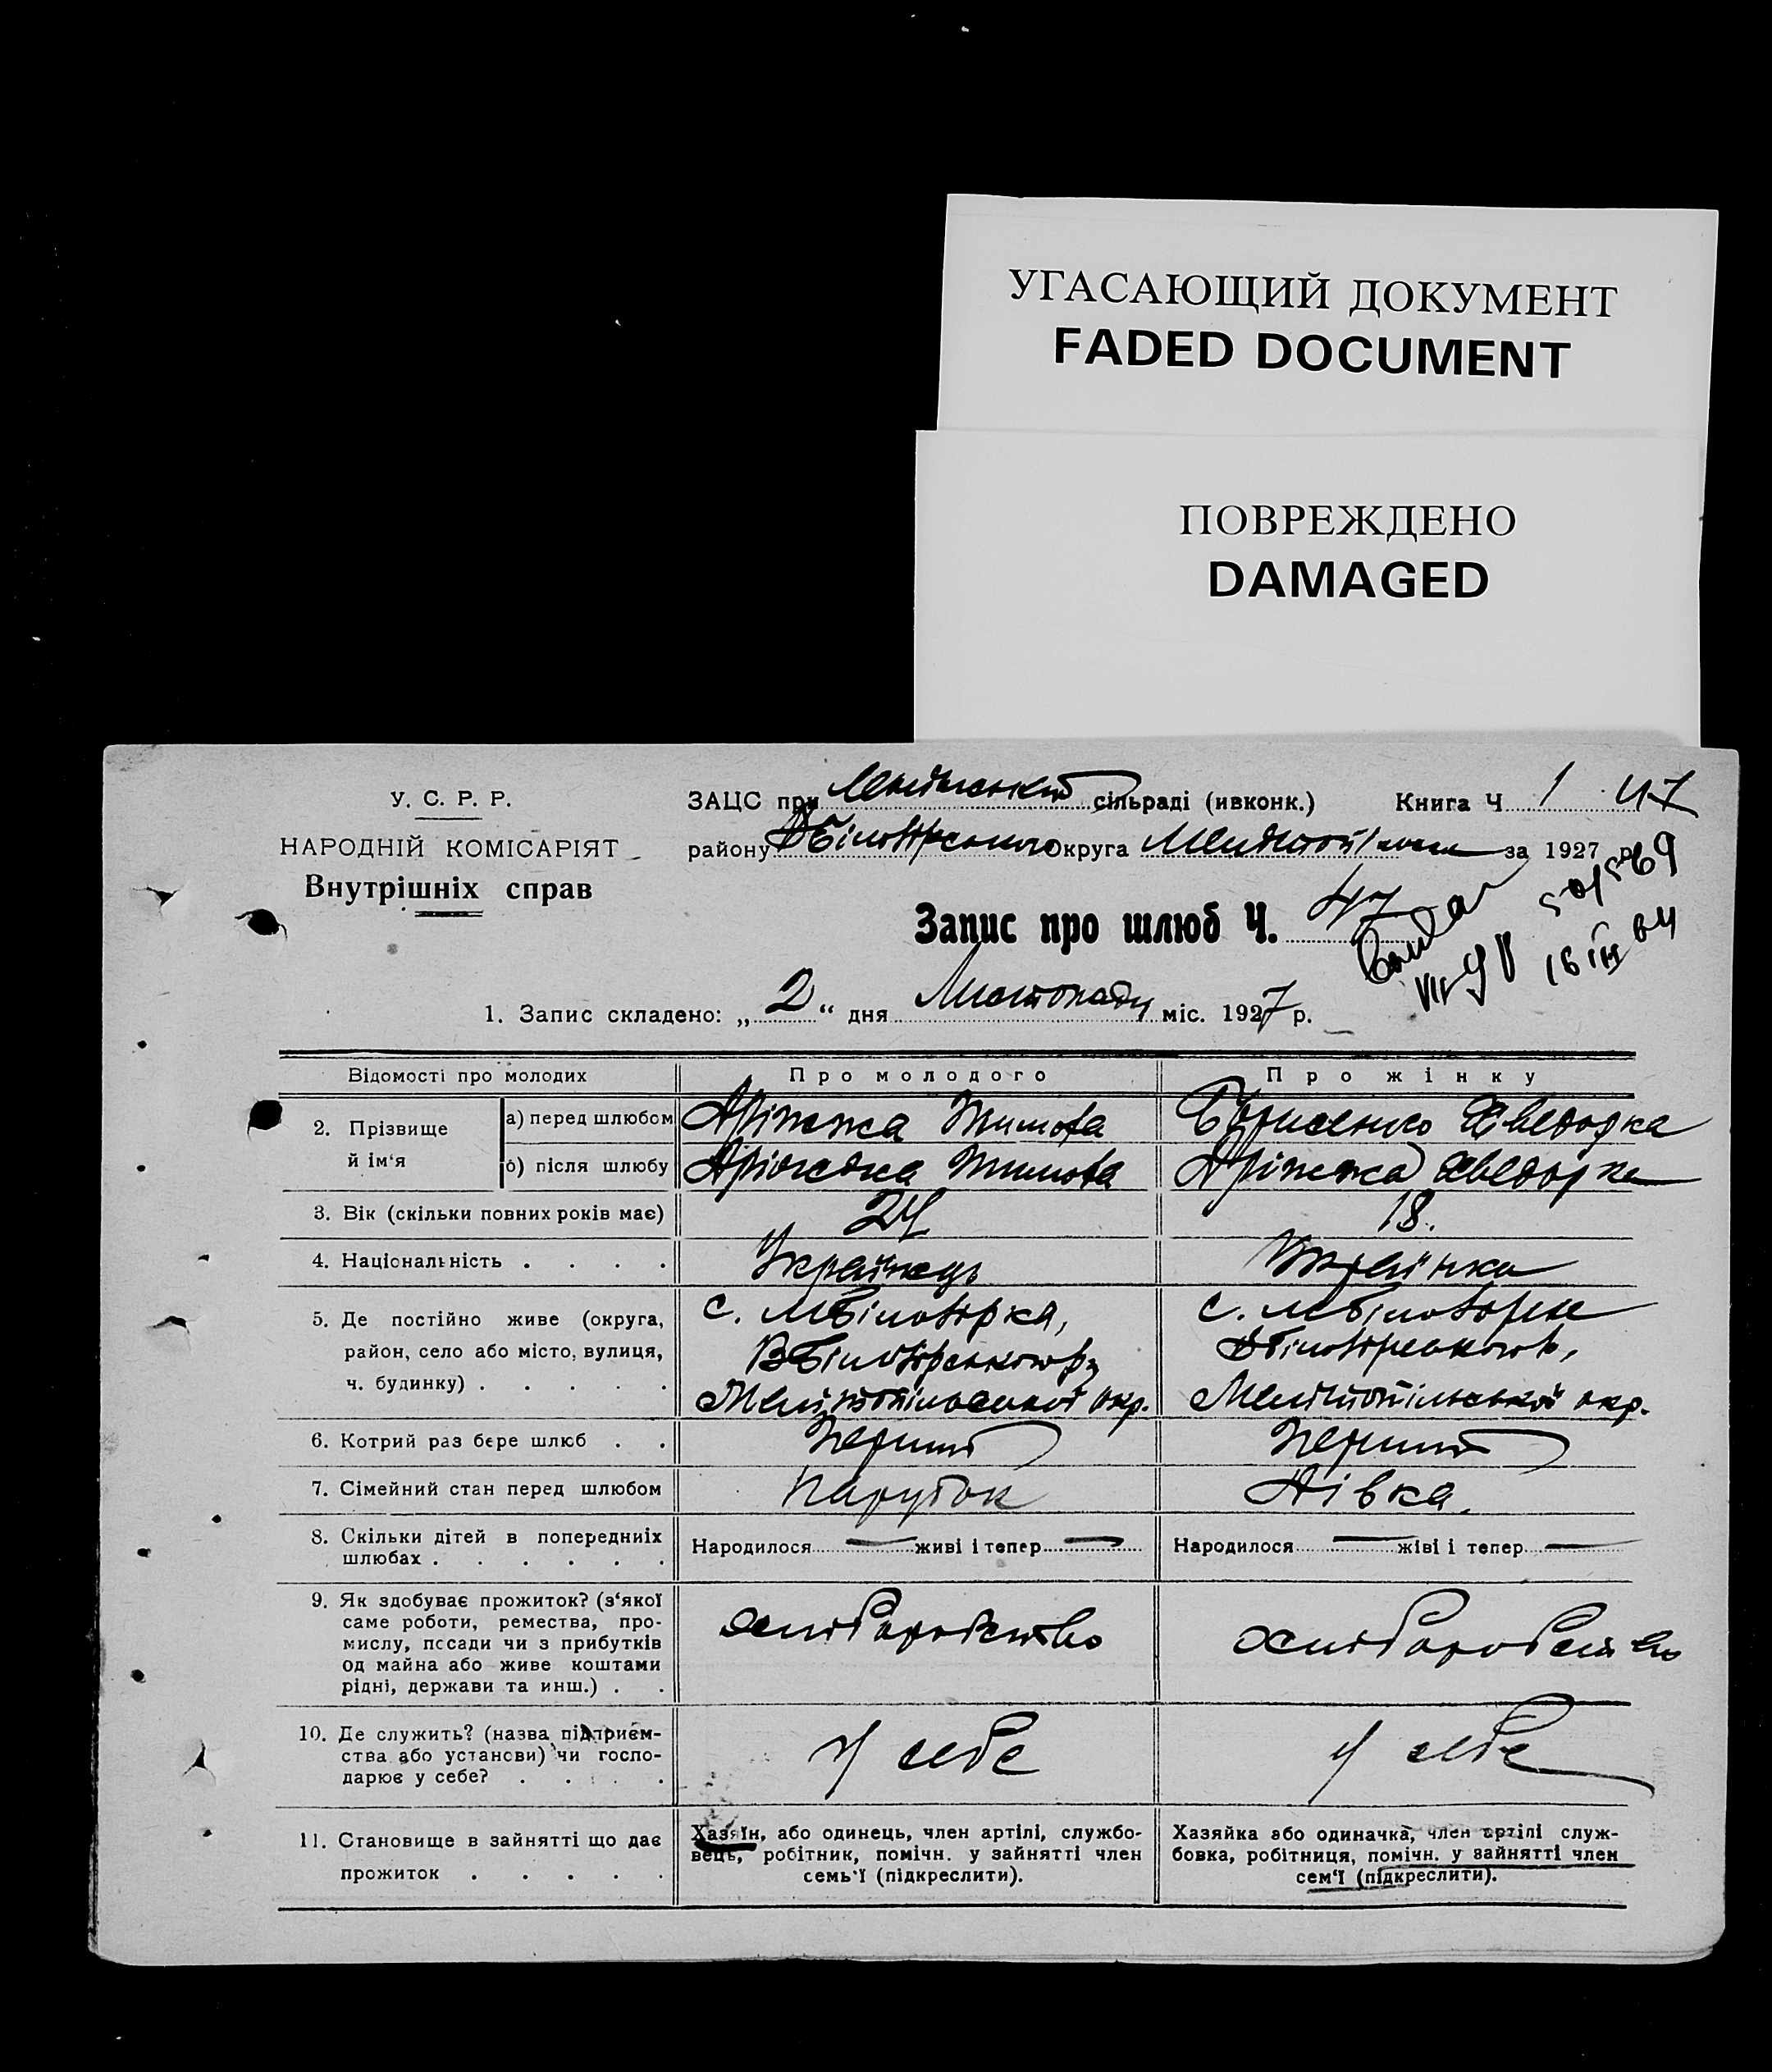 УГАСАЮЩИЙ ДОКУМЕНТ
FADED DOCUMENT
ПОВРЕЖДЕНО
DAMAGED
У. С. Р. Р.
НАРОДНІЙ КОМІСАРІЯТ
Внутрішніх справ
ЗАЦС при сільраді (ивконк.) Книга Ч 1 47
району округа за 1927 р.
Запис про шлюб Ч. 47
1. Запис складено: „ 2 “ дня Листопаду міс. 1927 р.
Відомості про молодих Про молодого Про жінку
2. Прізвище й ім‘я
а) перед шлюбом Дріжжа Тимофа Борисенко Хведорка
б) після шлюбу Дріжжа Тимофа Дріжжа Хведорка
3. Вік (скільки повних років має) 24 18.
4. Національність . . . . Українець Українка
5. Де постійно живе (округа,
район, село або місто, вулиця,
ч. будинку) . . . . .
с. МБілозорка,
ВБілозорського р,
Мелітопільської окр.
с. МБілозорка
ВБілозорського р,
Мелітопільської окр.
6. Котрий раз бере шлюб . . Перший Перший
7. Сімейний стан перед шлюбом Парубок Дівка.
8. Скільки дітей в попередниіх
шлюбах . . . . . .
Народилося — живі і тепер —
Народилося — жіві і тепер —
9. Як здобуває прожиток? (з‘якої
саме роботи, ремества, про-
мислу, посади чи з прибутків
од майна або живе коштами
рідні, держави та инш.) . .
Хліборобство
Хліборобство
10. Де служить? (назва підприєм-
ства або установи) чи госпо-
дарює у себе? . . . .
у себе
у себе
11. Становище в зайнятті що дає
прожиток . . . . .
Хазяїн, або одинець, член артілі, службо-
вець, робітник, помічн. у зайнятті член
семь‘ї (підкреслити).
Хазяйка або одиначка, член артілі служ-
бовка, робітниця, помічн. у зайнятті член
сем‘ї (підкреслити).